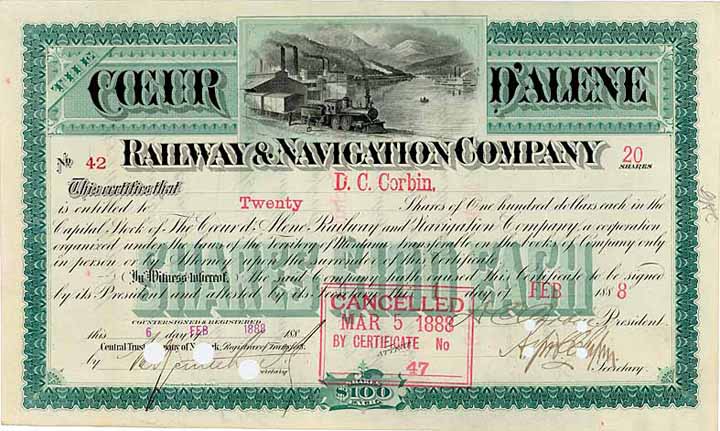 THE
CŒUR D'ALENE
RAILWAY & NAVIGATION COMPANY
No 42
20 SHARES
This certifies that D. C. Corbin,
is entitled to Twenty Shares of One hundred dollars each in the
Capital Stock of The Cœur d'Alene Railway and Navigation Company, a corporation
organized under the laws of the Territory of Montana, transferable on the books of the Company only
in person or by Attorney upon the surrender of this Certificate.
SHARES $100 EACH
In Witness whereof, The said Company hath caused this Certificate to be signed
by its President and attested by its Secretary this day of FEB 1888
President.
COUNTERSIGNED & REGISTERED
this 6 day of FEB 1888 188
Central Trust Company of New York, Registrar of Transfers.
by
Secretary
CANCELLED
MAR 5 1888
BY CERTIFICATE No
47
ATTEST
Secretary.
SHARES
$100
EACH